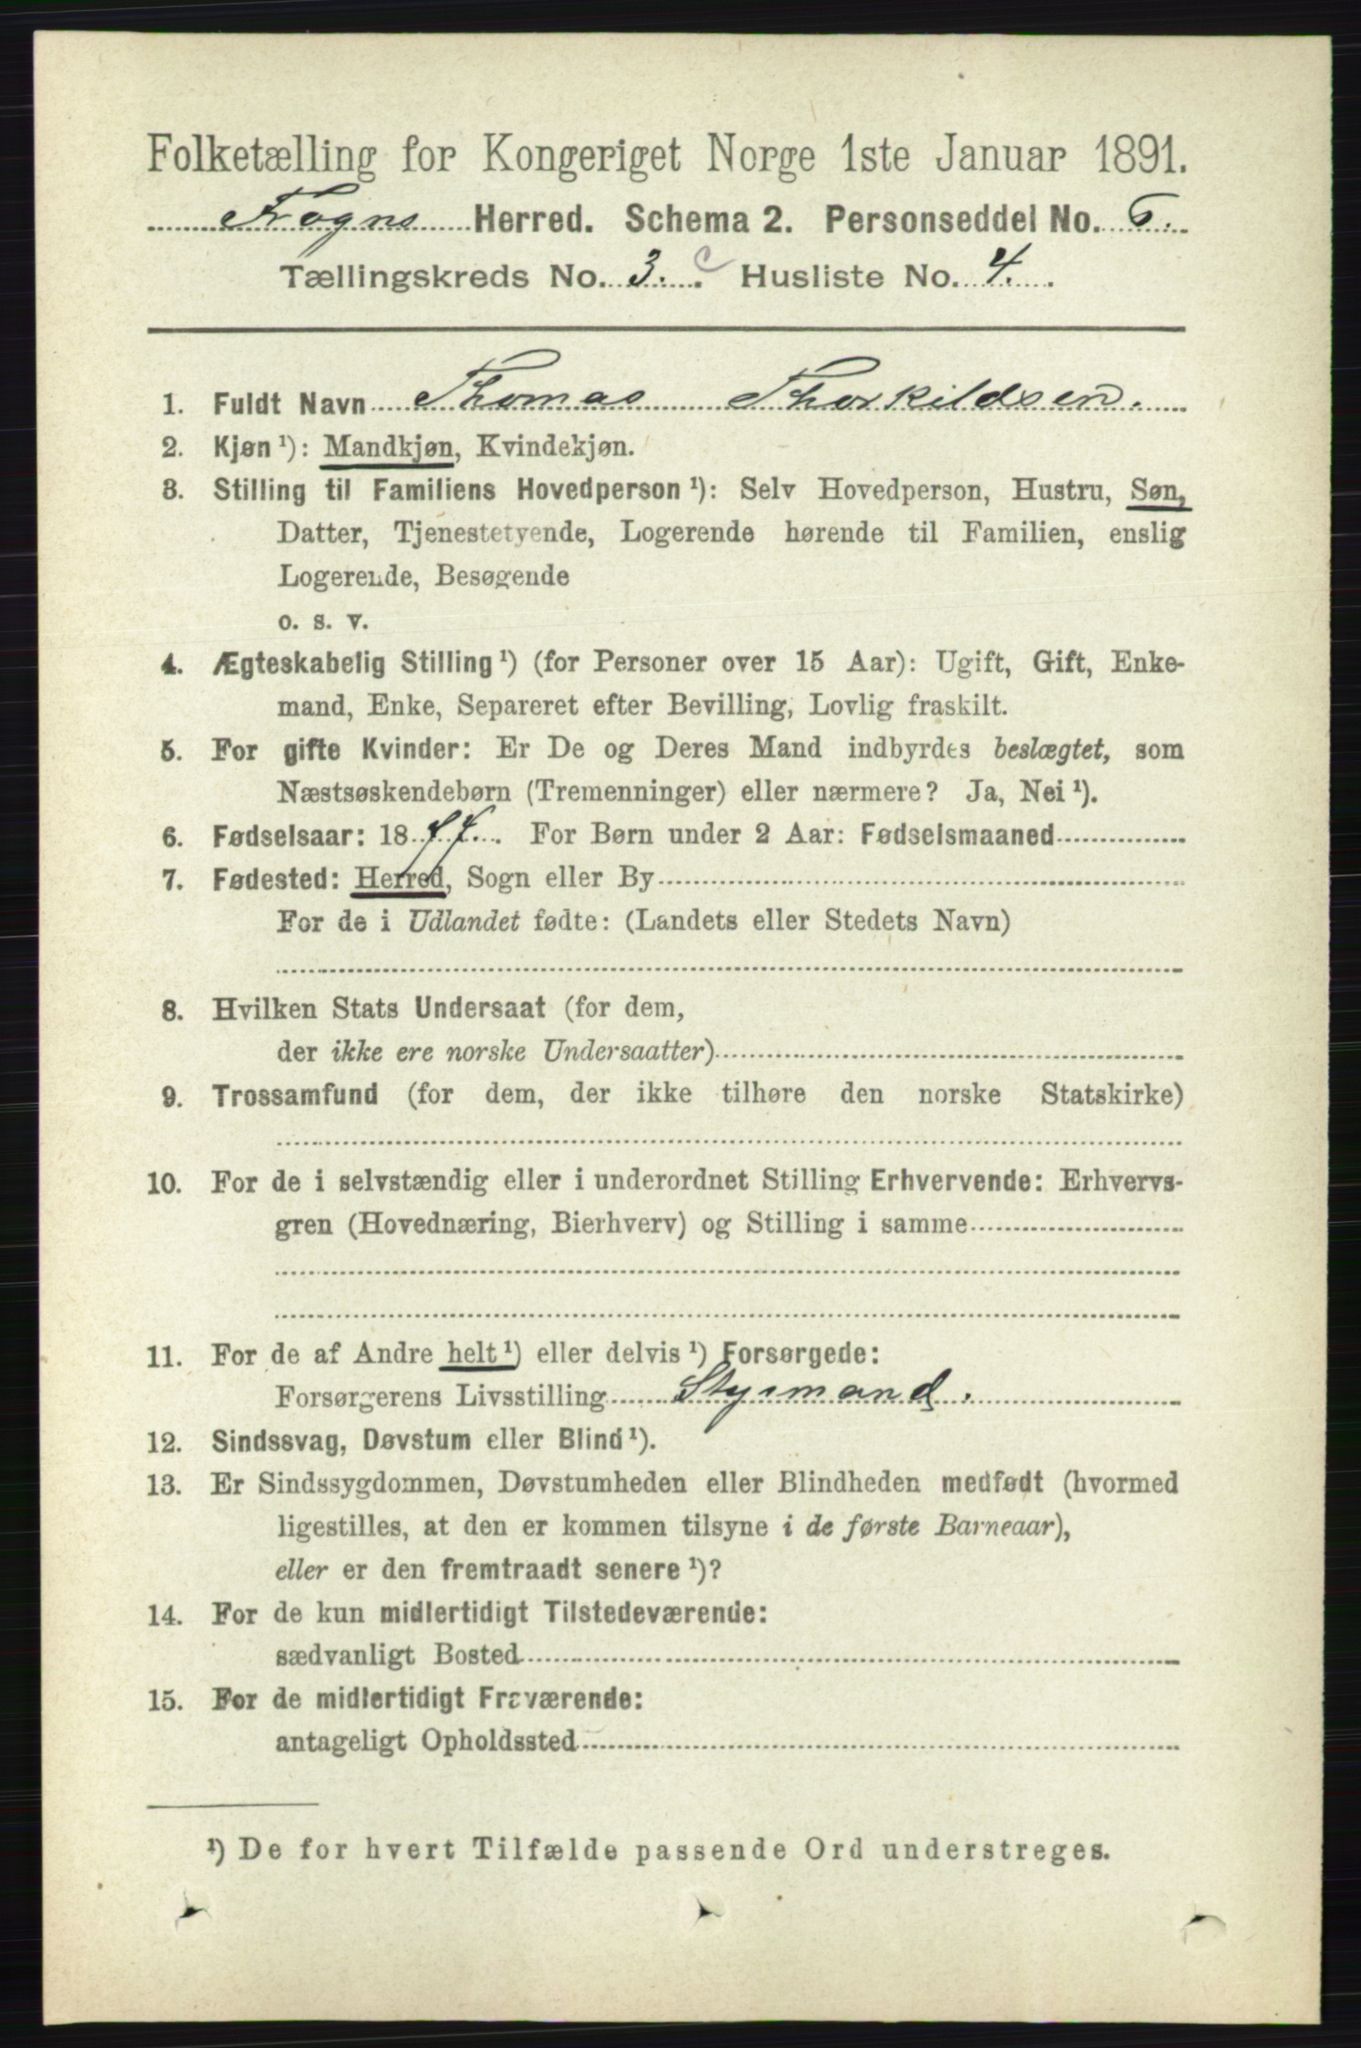 Folketælling for Kongeriget Norge 1ste Januar 1891.
Frogns Herred. Schema 2. Personseddel No. 6.
Tællingskreds No. 3. c Husliste No. 4.
1. Fuldt Navn Thomas Thorkildsen.
2. Kjøn ¹): Mandkjøn, Kvindekjøn.
3. Stilling til Familiens Hovedperson ¹): Selv Hovedperson, Hustru, Søn,
Datter, Tjenestetyende, Logerende hørende til Familien, enslig
Logerende, Besøgende
o. s. v.
4. Ægteskabelig Stilling ¹) (for Personer over 15 Aar): Ugift, Gift, Enke-
mand, Enke, Separeret efter Bevilling, Lovlig fraskilt.
5. For gifte Kvinder: Er De og Deres Mand indbyrdes beslægtet, som
Næstsøskendebørn (Tremenninger) eller nærmere? Ja, Nei ¹).
6. Fødselsaar: 1877. For Børn under 2 Aar: Fødselsmaaned
7. Fødested: Herred, Sogn eller By
For de i Udlandet fødte: (Landets eller Stedets Navn)
8. Hvilken Stats Undersaat (for dem,
der ikke ere norske Undersaatter)
9. Trossamfund (for dem, der ikke tilhøre den norske Statskirke)
10. For de i selvstændig eller i underordnet Stilling Erhvervende: Erhvervs-
gren (Hovednæring, Bierhverv) og Stilling i samme
11. For de af Andre helt ¹) eller delvis ¹) Forsørgede:
Forsørgerens Livsstilling Styrmand.
12. Sindssvag, Døvstum eller Blind ¹).
13. Er Sindssygdommen, Døvstumheden eller Blindheden medfødt (hvormed
ligestilles, at den er kommen tilsyne i de første Barneaar),
eller er den fremtraadt senere ¹)?
14. For de kun midlertidigt Tilstedeværende:
sædvanligt Bosted
15. For de midlertidigt Fraværende:
antageligt Opholdssted
¹) De for hvert Tilfælde passende Ord understreges.